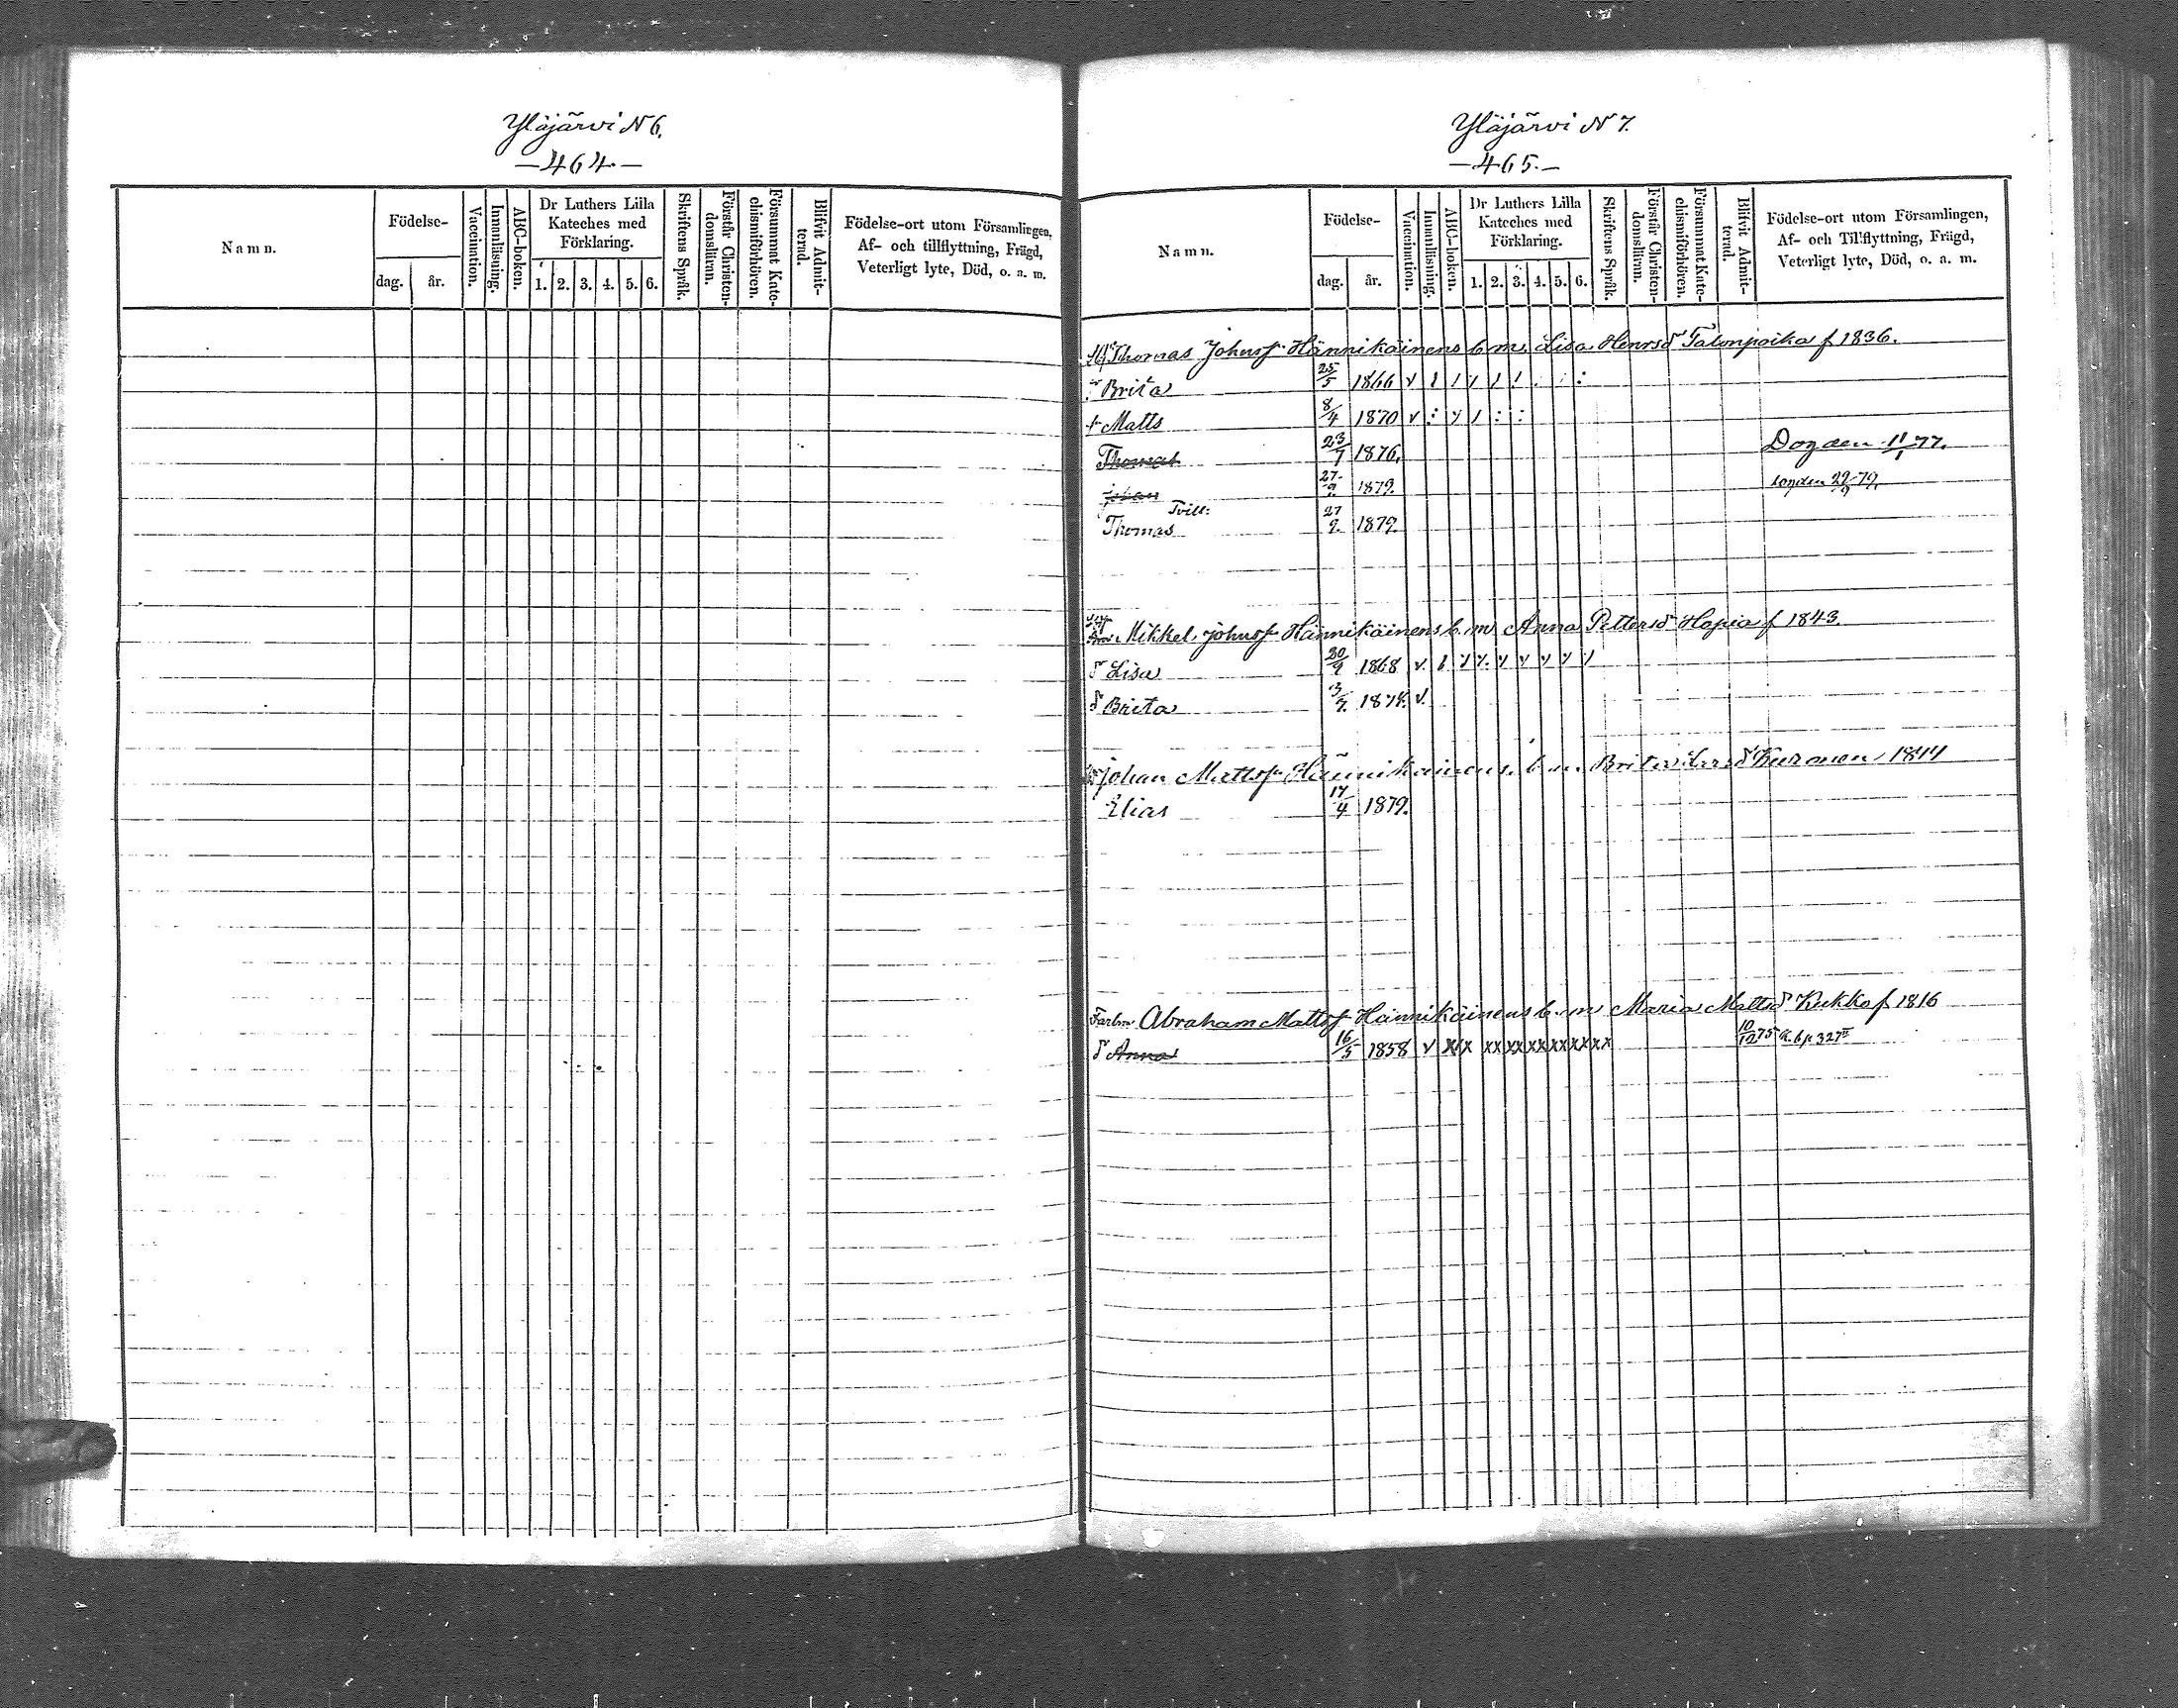 Yläjärvi N 6.
—464.—
Namn.
Födelse-
dag.
år.
Vaccination.
Innanläsning.
ABC-boken.
Dr Luthers Lilla
Kateches med
Förklaring.
1. 2. 3. 4. 5. 6.
Skriftens Språk.
Förstår Christen-
domsläran.
Försummat Kate-
chismiförhören.
Blifvit Admit-
terad.
Födelse-ort utom Församlingen,
Af- och tillflyttning, Frägd,
Veterligt lyte, Död, o. a. m.
Yläjärvi N 7.
—465.—
Namn.
Födelse-
dag.
år.
Vaccination.
Innanläsning.
ABC-boken.
Dr Luthers Lilla
Kateches med
Förklaring.
1. 2. 3. 4. 5. 6.
Skriftens Språk.
Förstår Christen-
domsläran.
Försummat Kate-
chismiförhören.
Blifvit Admit-
terad.
Födelse-ort utom Församlingen,
Af- och Tillflyttning, Frägd,
Veterligt lyte, Död, o. a. m.
Thomas Johnsf Hännikäinens b. m. Lisa Henrsd Talonpoika f 1836.
Brita 25/5 1866 v
Matts 8/4 1870 v
Thomas 23/7 1876. Dog den 11/1 77.
Johan 27/9. 1879. 29/9 79.
Tvill:
Thomas 27/9. 1879.
Mikkel Johnsf Hännikäinens b. m Anna Pettersd Hapia f 1843.
d Lisa 20/9 1868 v
d Brita 3/7. 1874. v.
Johan Mattsf Hännikäinens. b. m. Brita Larsd Kuronen 1844
Elias 17/4 1879.
Farbr Abraham Mattsf Hännikäinens b. m Maria Mattsd Kukko f 1816
d Anna 16/5 1858 v xxx xx xx xx xx xx xx 10/12 75 K. b p. 327 II